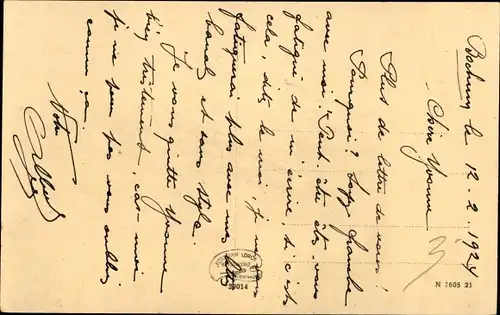 Bochum, le 12. 2. 1924
Chère Yvonne
Plus de lettre de vous!
Pourquoi? Soyez franche
avec moi. Peut-être êtes-vous
fatiguée de m'écrire, si c'est
cela, dites le moi, je ne vous
fatiguerai plus avec mes lettres
banales et sans style.
Je vous quitte Yvonne
bien tristement, car moi
je ne peux pas vous oublier
comme ça.
Votre
N 7605 21
30014